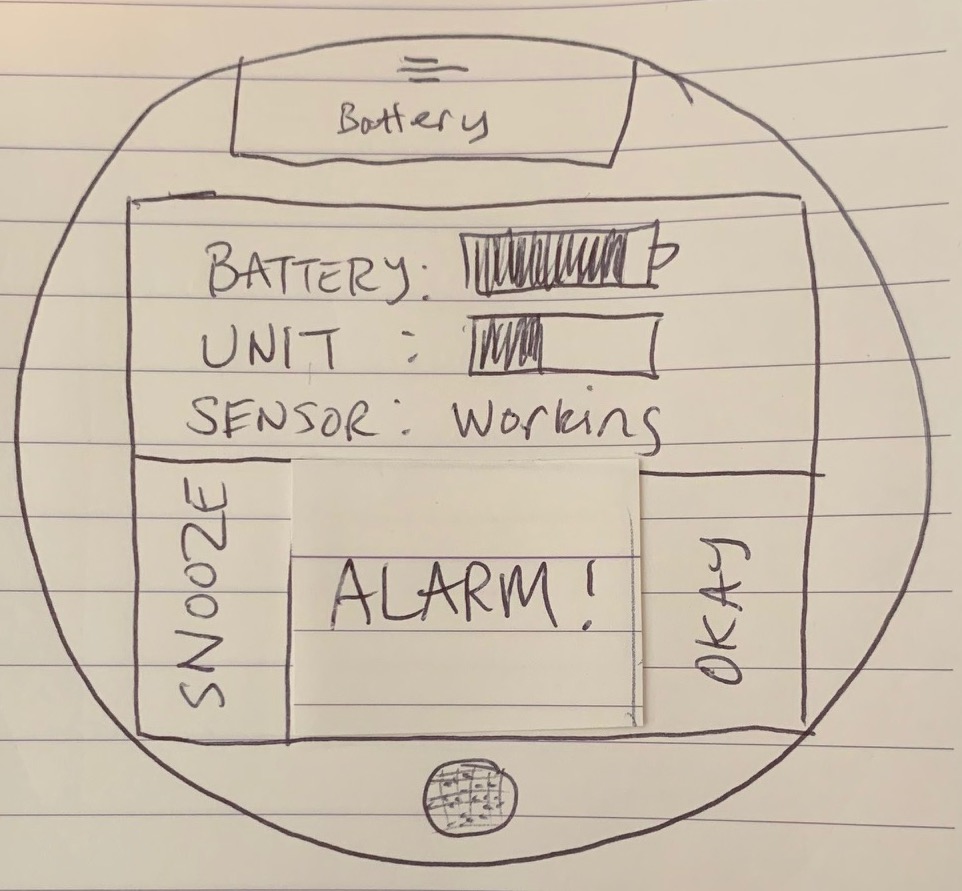 Battery
BATTERY:
UNIT :
SENSOR: Working
SNOOZE
ALARM!
OKAY